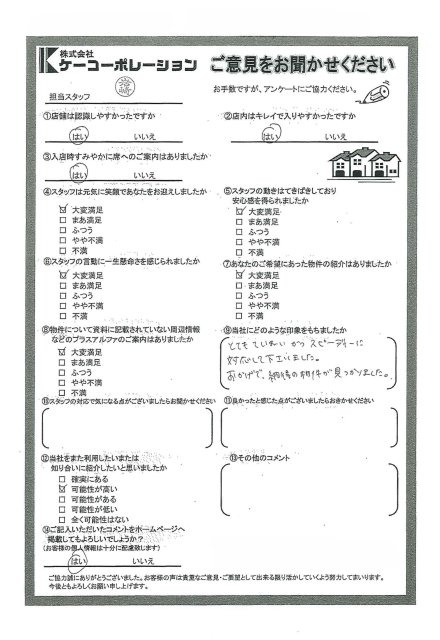 株式会社
ケーコーポレーション
ご意見をお聞かせください
担当スタッフ
お手数ですが、アンケートにご協力ください。
①店舗は認識しやすかったですか
はい いいえ
②店内はキレイで入りやすかったですか
はい いいえ
③入店時すみやかに席へのご案内はありましたか
はい いいえ
④スタッフは元気に笑顔であなたをお迎えしましたか
☑ 大変満足
□ まあ満足
□ ふつう
□ やや不満
□ 不満
⑤スタッフの動きはてきぱきしており
安心感を得られましたか
☑ 大変満足
□ まあ満足
□ ふつう
□ やや不満
□ 不満
⑥スタッフの言動に一生懸命さを感じられましたか
☑ 大変満足
□ まあ満足
□ ふつう
□ やや不満
□ 不満
⑦あなたのご希望にあった物件の紹介はありましたか
☑ 大変満足
□ まあ満足
□ ふつう
□ やや不満
□ 不満
⑧物件について資料に記載されていない周辺情報
などのプラスアルファのご案内はありましたか
☑ 大変満足
□ まあ満足
□ ふつう
□ やや不満
□ 不満
⑨当社にどのような印象をもちましたか
とても ていねい かつ スピーディーに
対応して下さいました。
おかげで、納得の物件が見つかりました。
⑩スタッフの対応で気になる点がございましたらお聞かせください
⑪良かったと感じた点がございましたらおきかせください
⑫当社をまた利用したいまたは
知り合いに紹介したいと思いましたか
□ 確実にある
☑ 可能性が高い
□ 可能性がある
□ 可能性が低い
□ 全く可能性はない
⑬その他のコメント
⑭ご記入いただいたコメントをホームページへ
掲載してもよろしいでしょうか？
(お客様の個人情報は十分に配慮致します)
はい いいえ
ご協力誠にありがとうございました。お客様の声は貴重なご意見・ご要望として出来る限り活かしていくよう努力してまいります。
今後ともよろしくお願い申し上げます。